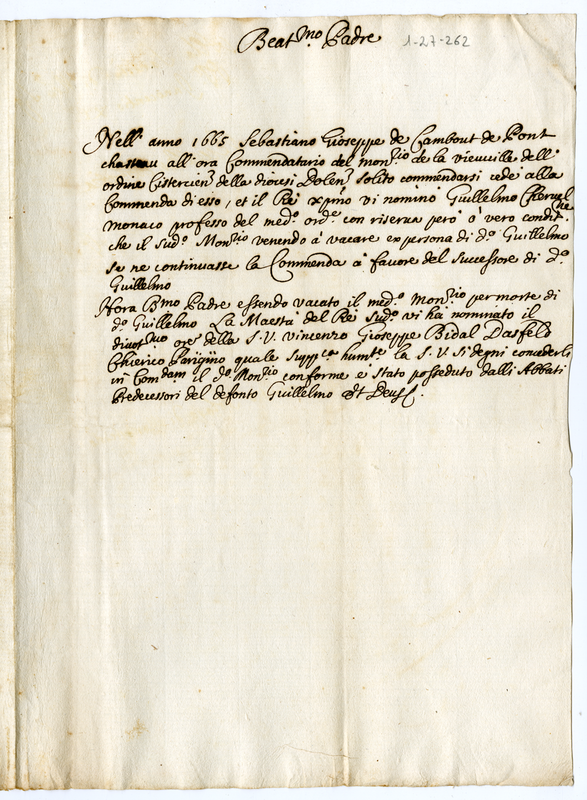 Beat.mo Padre 1-27-262
Nell' anno 1665 Sebastiano Gioseppe de Cambout de Pont
chasteau all' ora Commendatario del mon.rio de la vieuville dell'
ordine Cistercien.s della diocesi Dolen.s solito commendarsi cede alla
Commenda di esso, et il Rè xpmo vi nominò Guillelmo
monaco professo del med.o ord.e con riserva però ò vero condit.che
che il sud.o Mon.rio venendo à vacare ex persona di d.o Guillelmo
se ne continuasse la Commenda à favore del Successore di d.o
Guillelmo
Hora B.mo Padre essendo vacato il med.o Mon.rio per morte di
d.o Guillelmo La Maestà del Rè Sud.o vi ha nominato il
ore della S. V. Vincenzo Gioseppe Bidal Dasfeld
Chierico Parigino quale supp.ca humte la S. V. si degni concederli
in Com.dam il d.o Mon.rio conforme è stato posseduto dalli Abbati
Predecessori del defonto Guillelmo